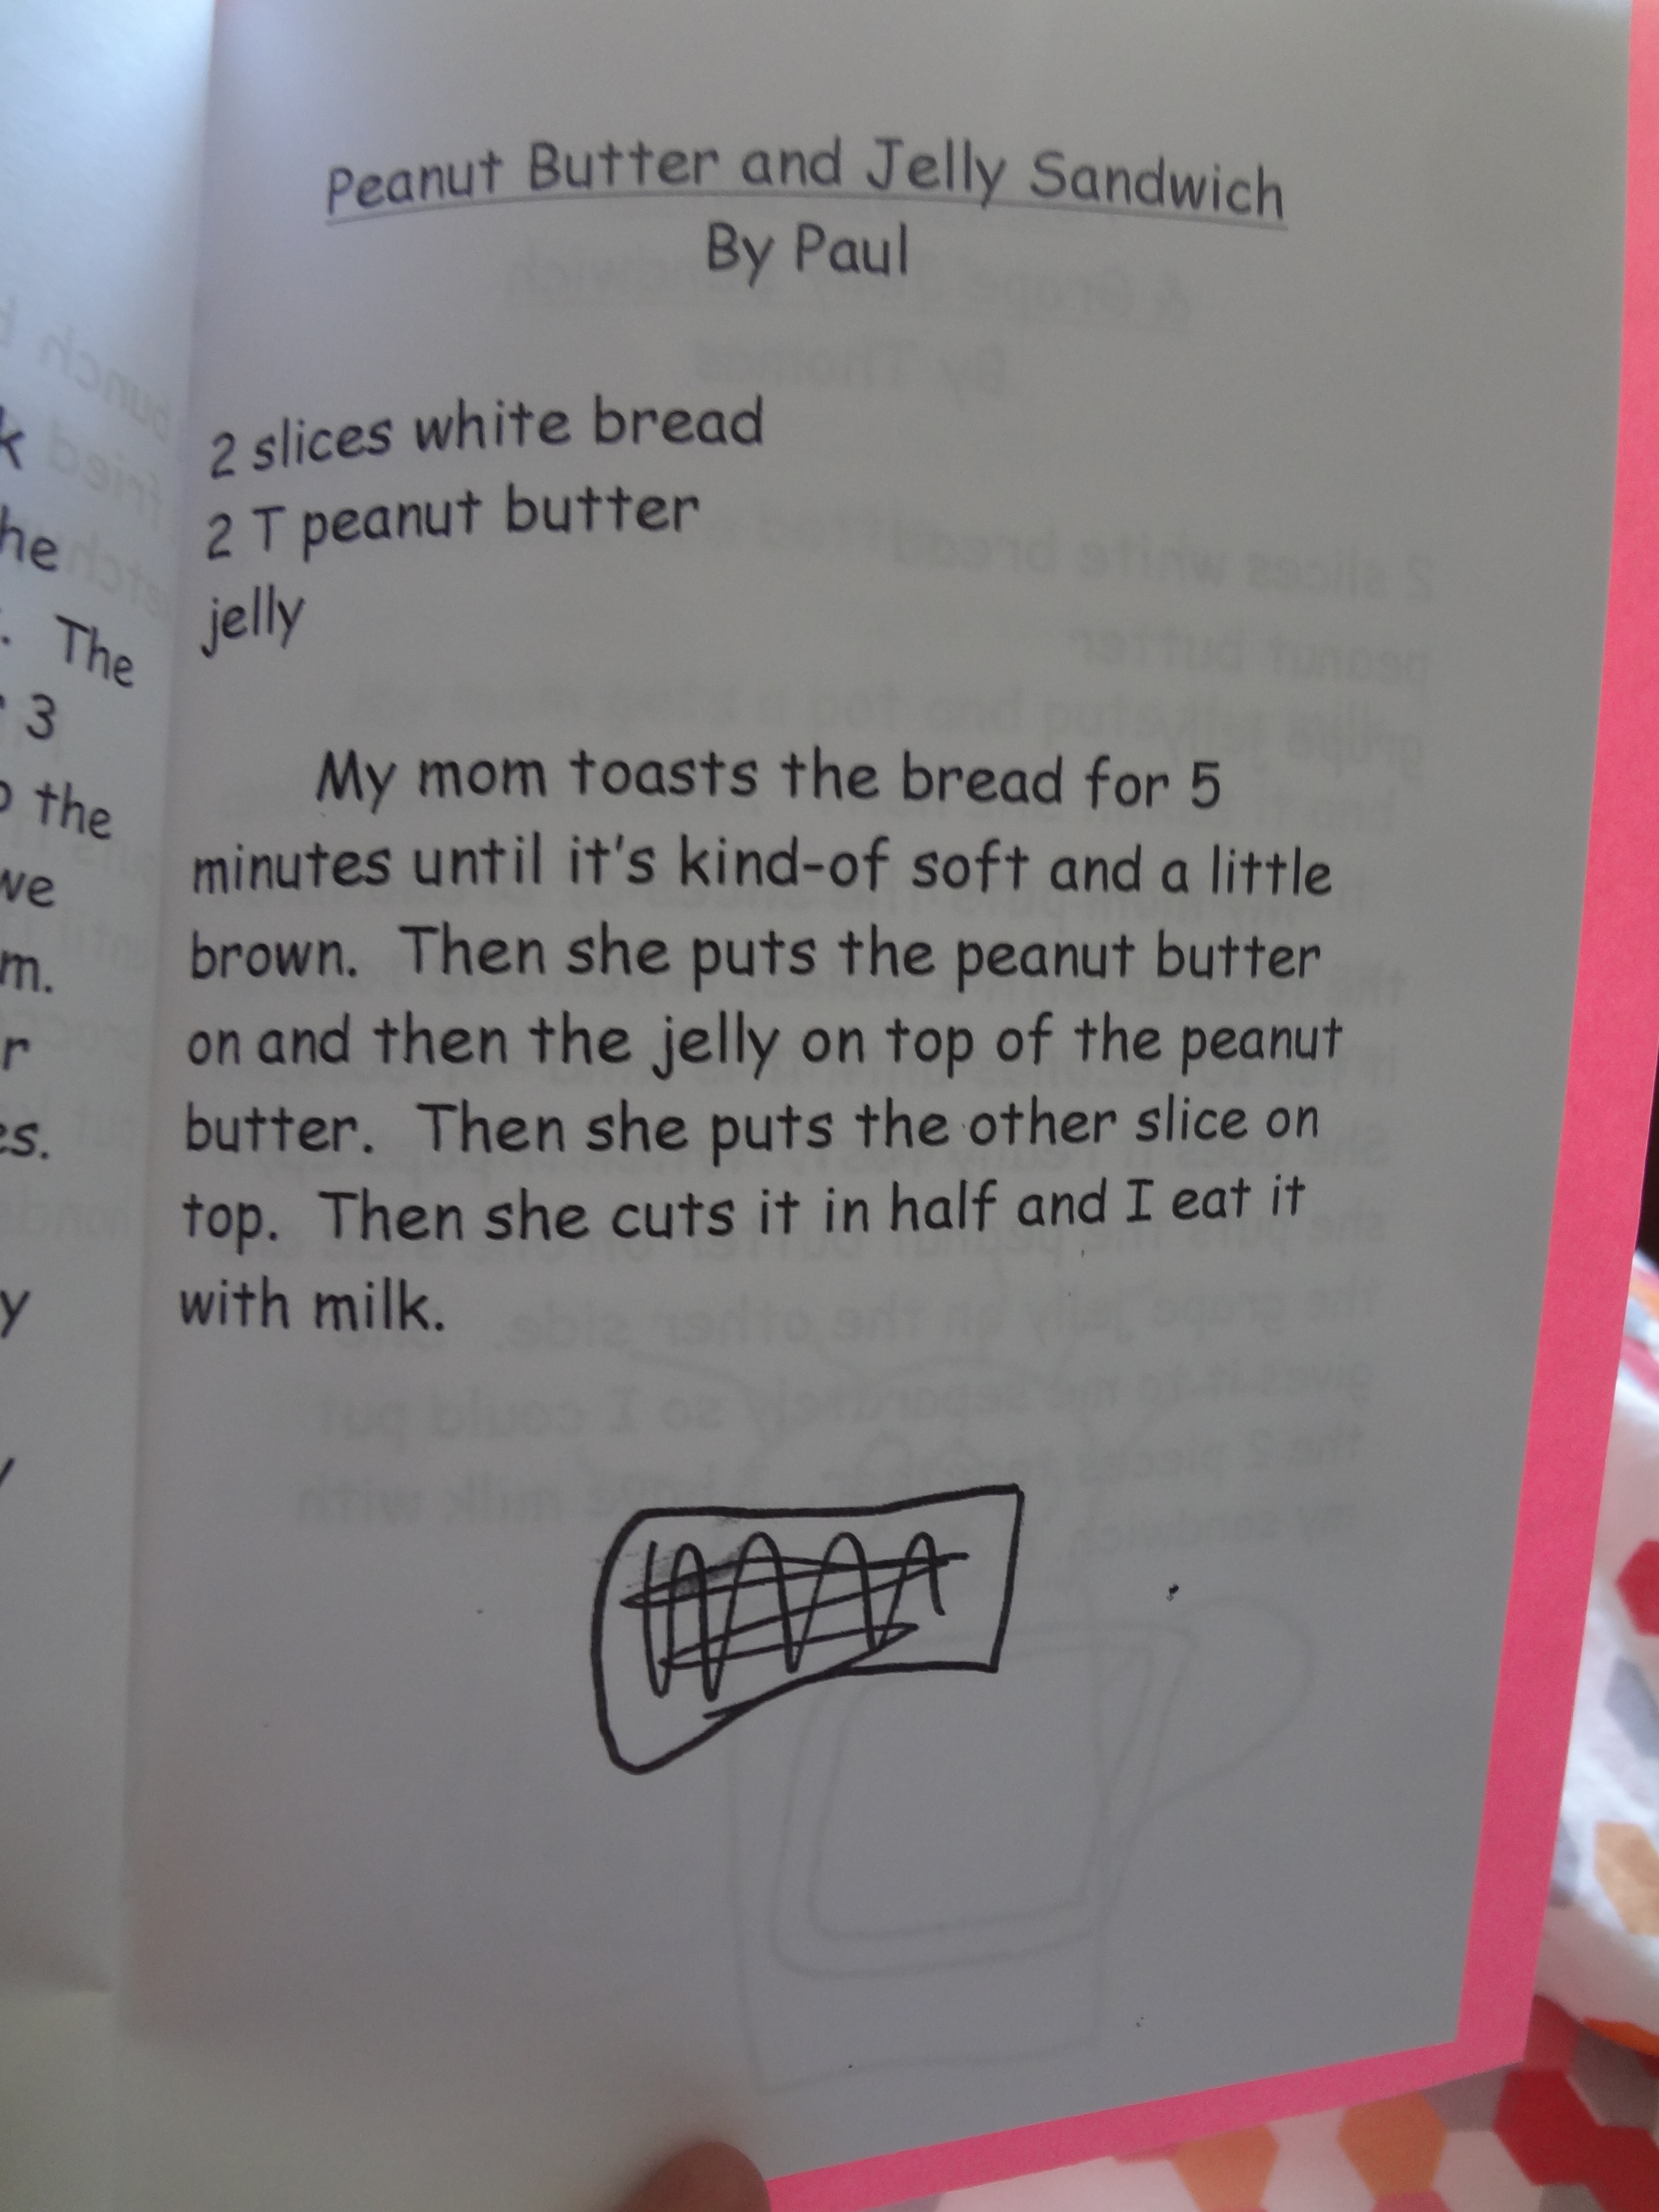 Peanut Butter and Jelly Sandwich
By Paul
2 slices white bread
2 T peanut butter
jelly
My mom toasts the bread for 5
minutes until it's kind-of soft and a little
brown. Then she puts the peanut butter
on and then the jelly on top of the peanut
butter. Then she puts the other slice on
top. Then she cuts it in half and I eat it
with milk.
k
he
. The
3
the
we
m.
r
es.
y